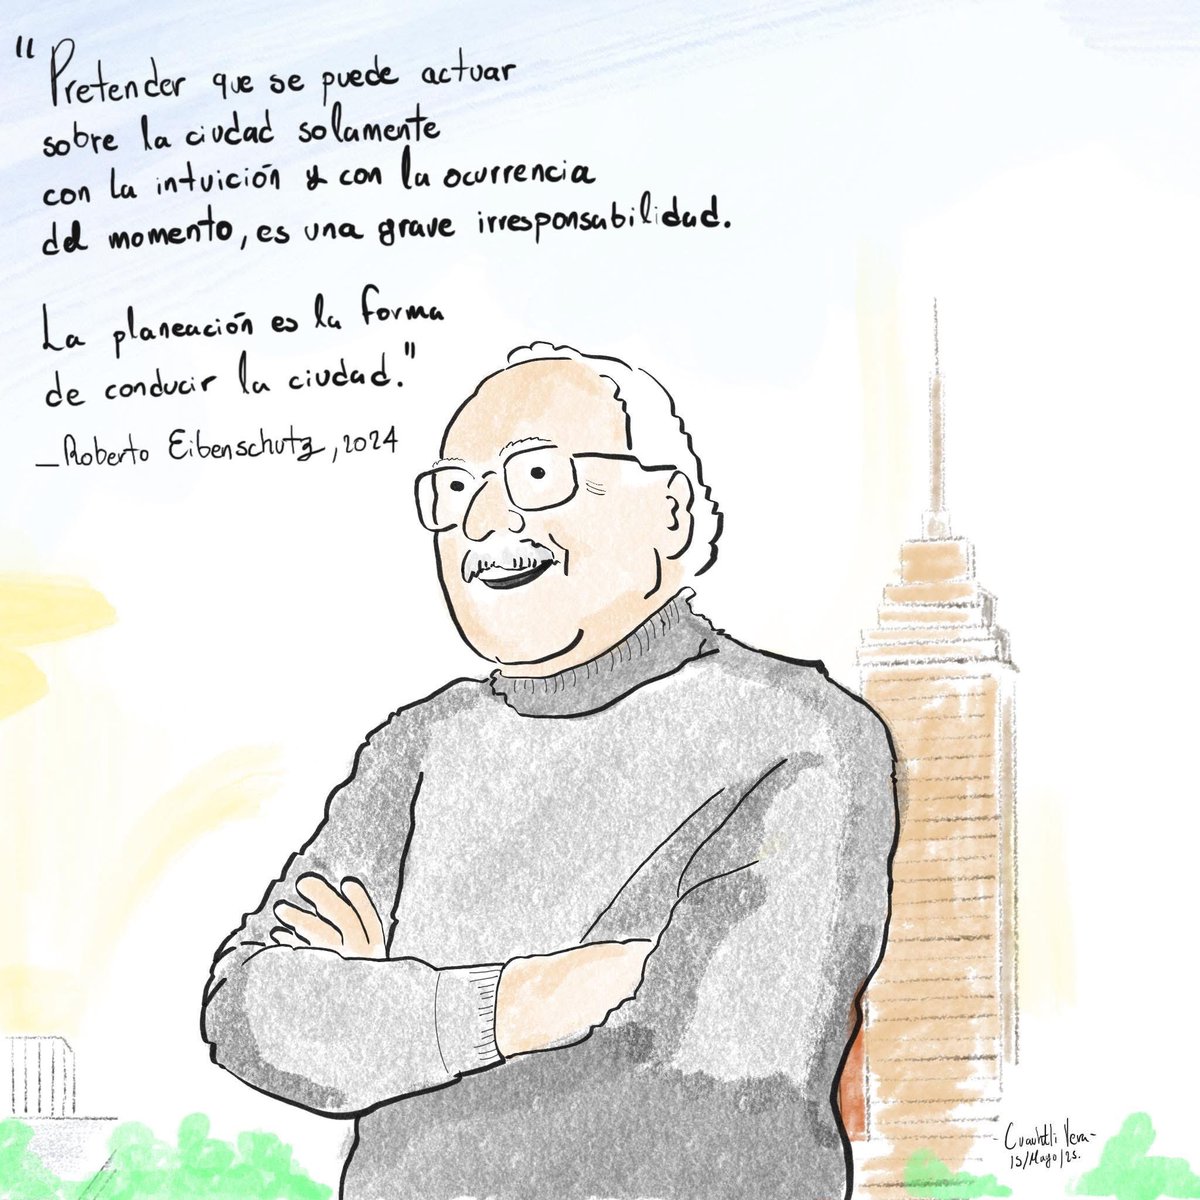 "Pretender que se puede actuar
sobre la ciudad solamente
con la intuición y con la ocurrencia
del momento, es una grave irresponsabilidad.
La planeación es la forma
de conducir la ciudad."
— Roberto Eibenschutz, 2024
- Cuauhtli Vera -
15/Mayo/25.